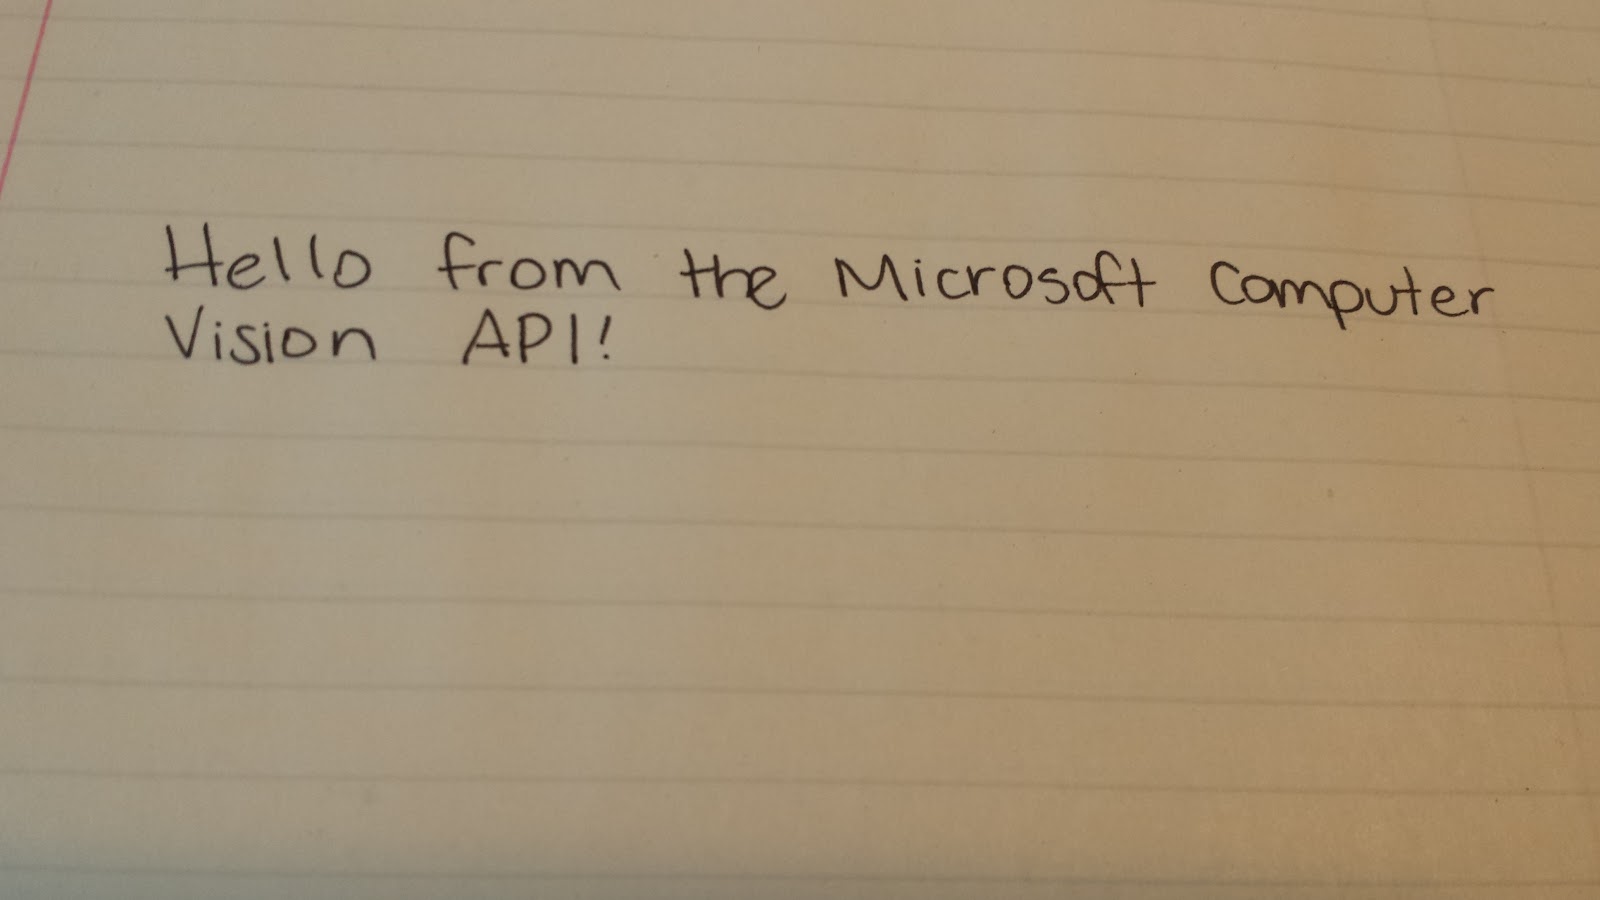 Hello from the Microsoft Computer
Vision API!